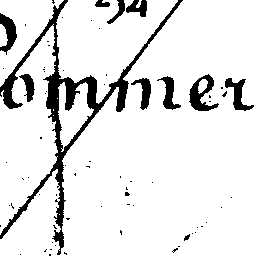 254
ommer